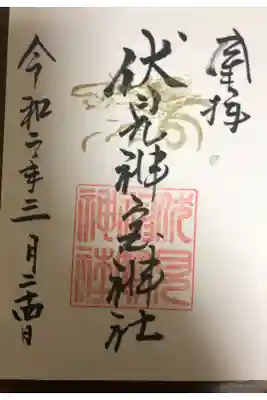 奉拝
伏見神宝神社
令和六年三月二十四日
伏見
神宝
神社